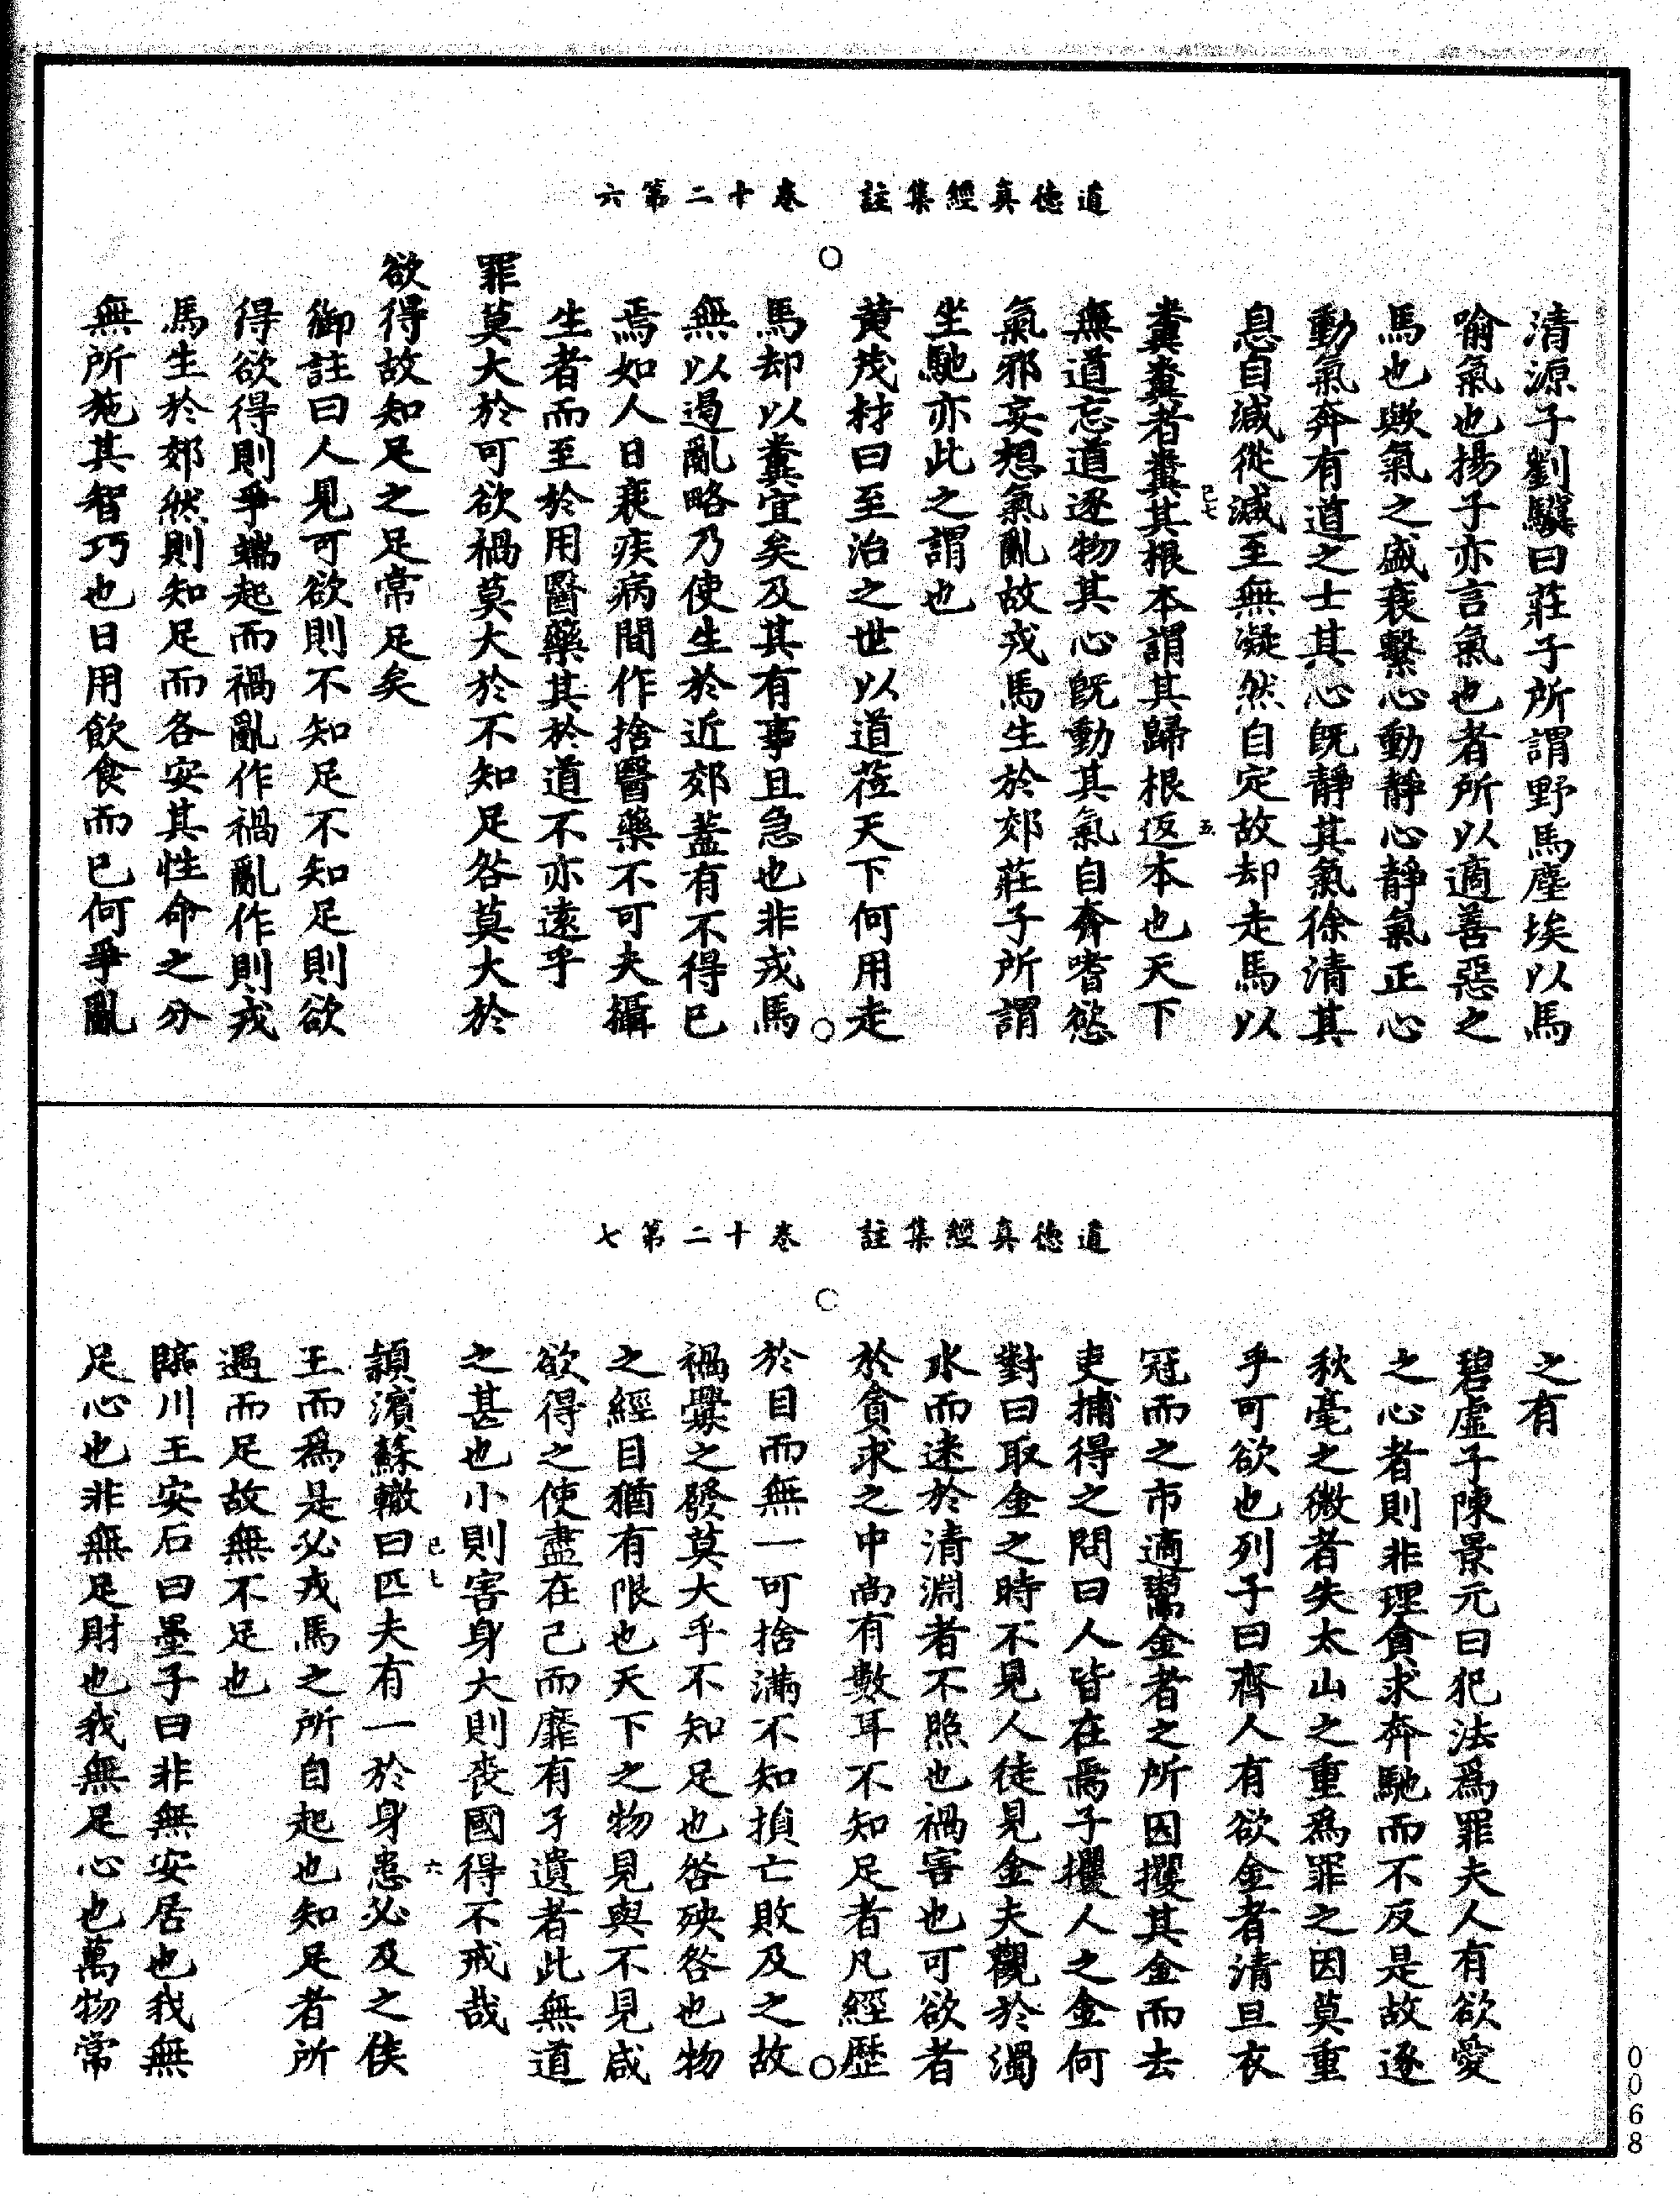 道德真經集註　卷十二第六
清源子劉驥曰莊子所謂野馬塵埃以馬
喻氣也揚子亦言氣也者所以適善惡之
馬也歟氣之盛衰繫心動靜心靜氣正心
動氣奔有道之士其心既靜其氣徐清其
息自減從減至無凝然自定故却走馬以
己七　五
糞糞者糞其根本謂其歸根返本也天下
無道忘道逐物其心既動其氣自奔嗜慾
氣邪妄想氣亂故戎馬生於郊莊子所謂
坐馳亦此之謂也
黃茂材曰至治之世以道莅天下何用走
馬却以糞宜矣及其有事且急也非戎馬
無以遏亂略乃使生於近郊蓋有不得已
焉如人日衰疾病間作捨醫藥不可夫攝
生者而至於用醫藥其於道不亦遠乎
罪莫大於可欲禍莫大於不知足咎莫大於
欲得故知足之足常足矣
御註曰人見可欲則不知足不知足則欲
得欲得則爭端起而禍亂作禍亂作則戎
馬生於郊然則知足而各安其性命之分
無所施其智巧也日用飲食而已何爭亂
道德真經集註　卷十二第七
之有
碧虛子陳景元曰犯法爲罪夫人有欲愛
之心者則非理貪求奔馳而不反是故逐
秋毫之微者失太山之重爲罪之因莫重
乎可欲也列子曰齊人有欲金者清旦衣
冠而之市適鬻金者之所因攫其金而去
吏捕得之問曰人皆在焉子攫人之金何
對曰取金之時不見人徒見金夫觀於濁
水而迷於清淵者不照也禍害也可欲者
於貪求之中尚有數耳不知足者凡經歷
於目而無一可捨滿不知損亡敗及之故
禍釁之發莫大乎不知足也咎殃咎也物
之經目猶有限也天下之物見與不見咸
欲得之使盡在己而靡有孑遺者此無道
之甚也小則害身大則喪國得不戒哉
己七　六
頴濱蘇轍曰匹夫有一於身患必及之侯
王而爲是必戎馬之所自起也知足者所
遇而足故無不足也
臨川王安石曰墨子曰非無安居也我無
足心也非無足財也我無足心也萬物常
0068